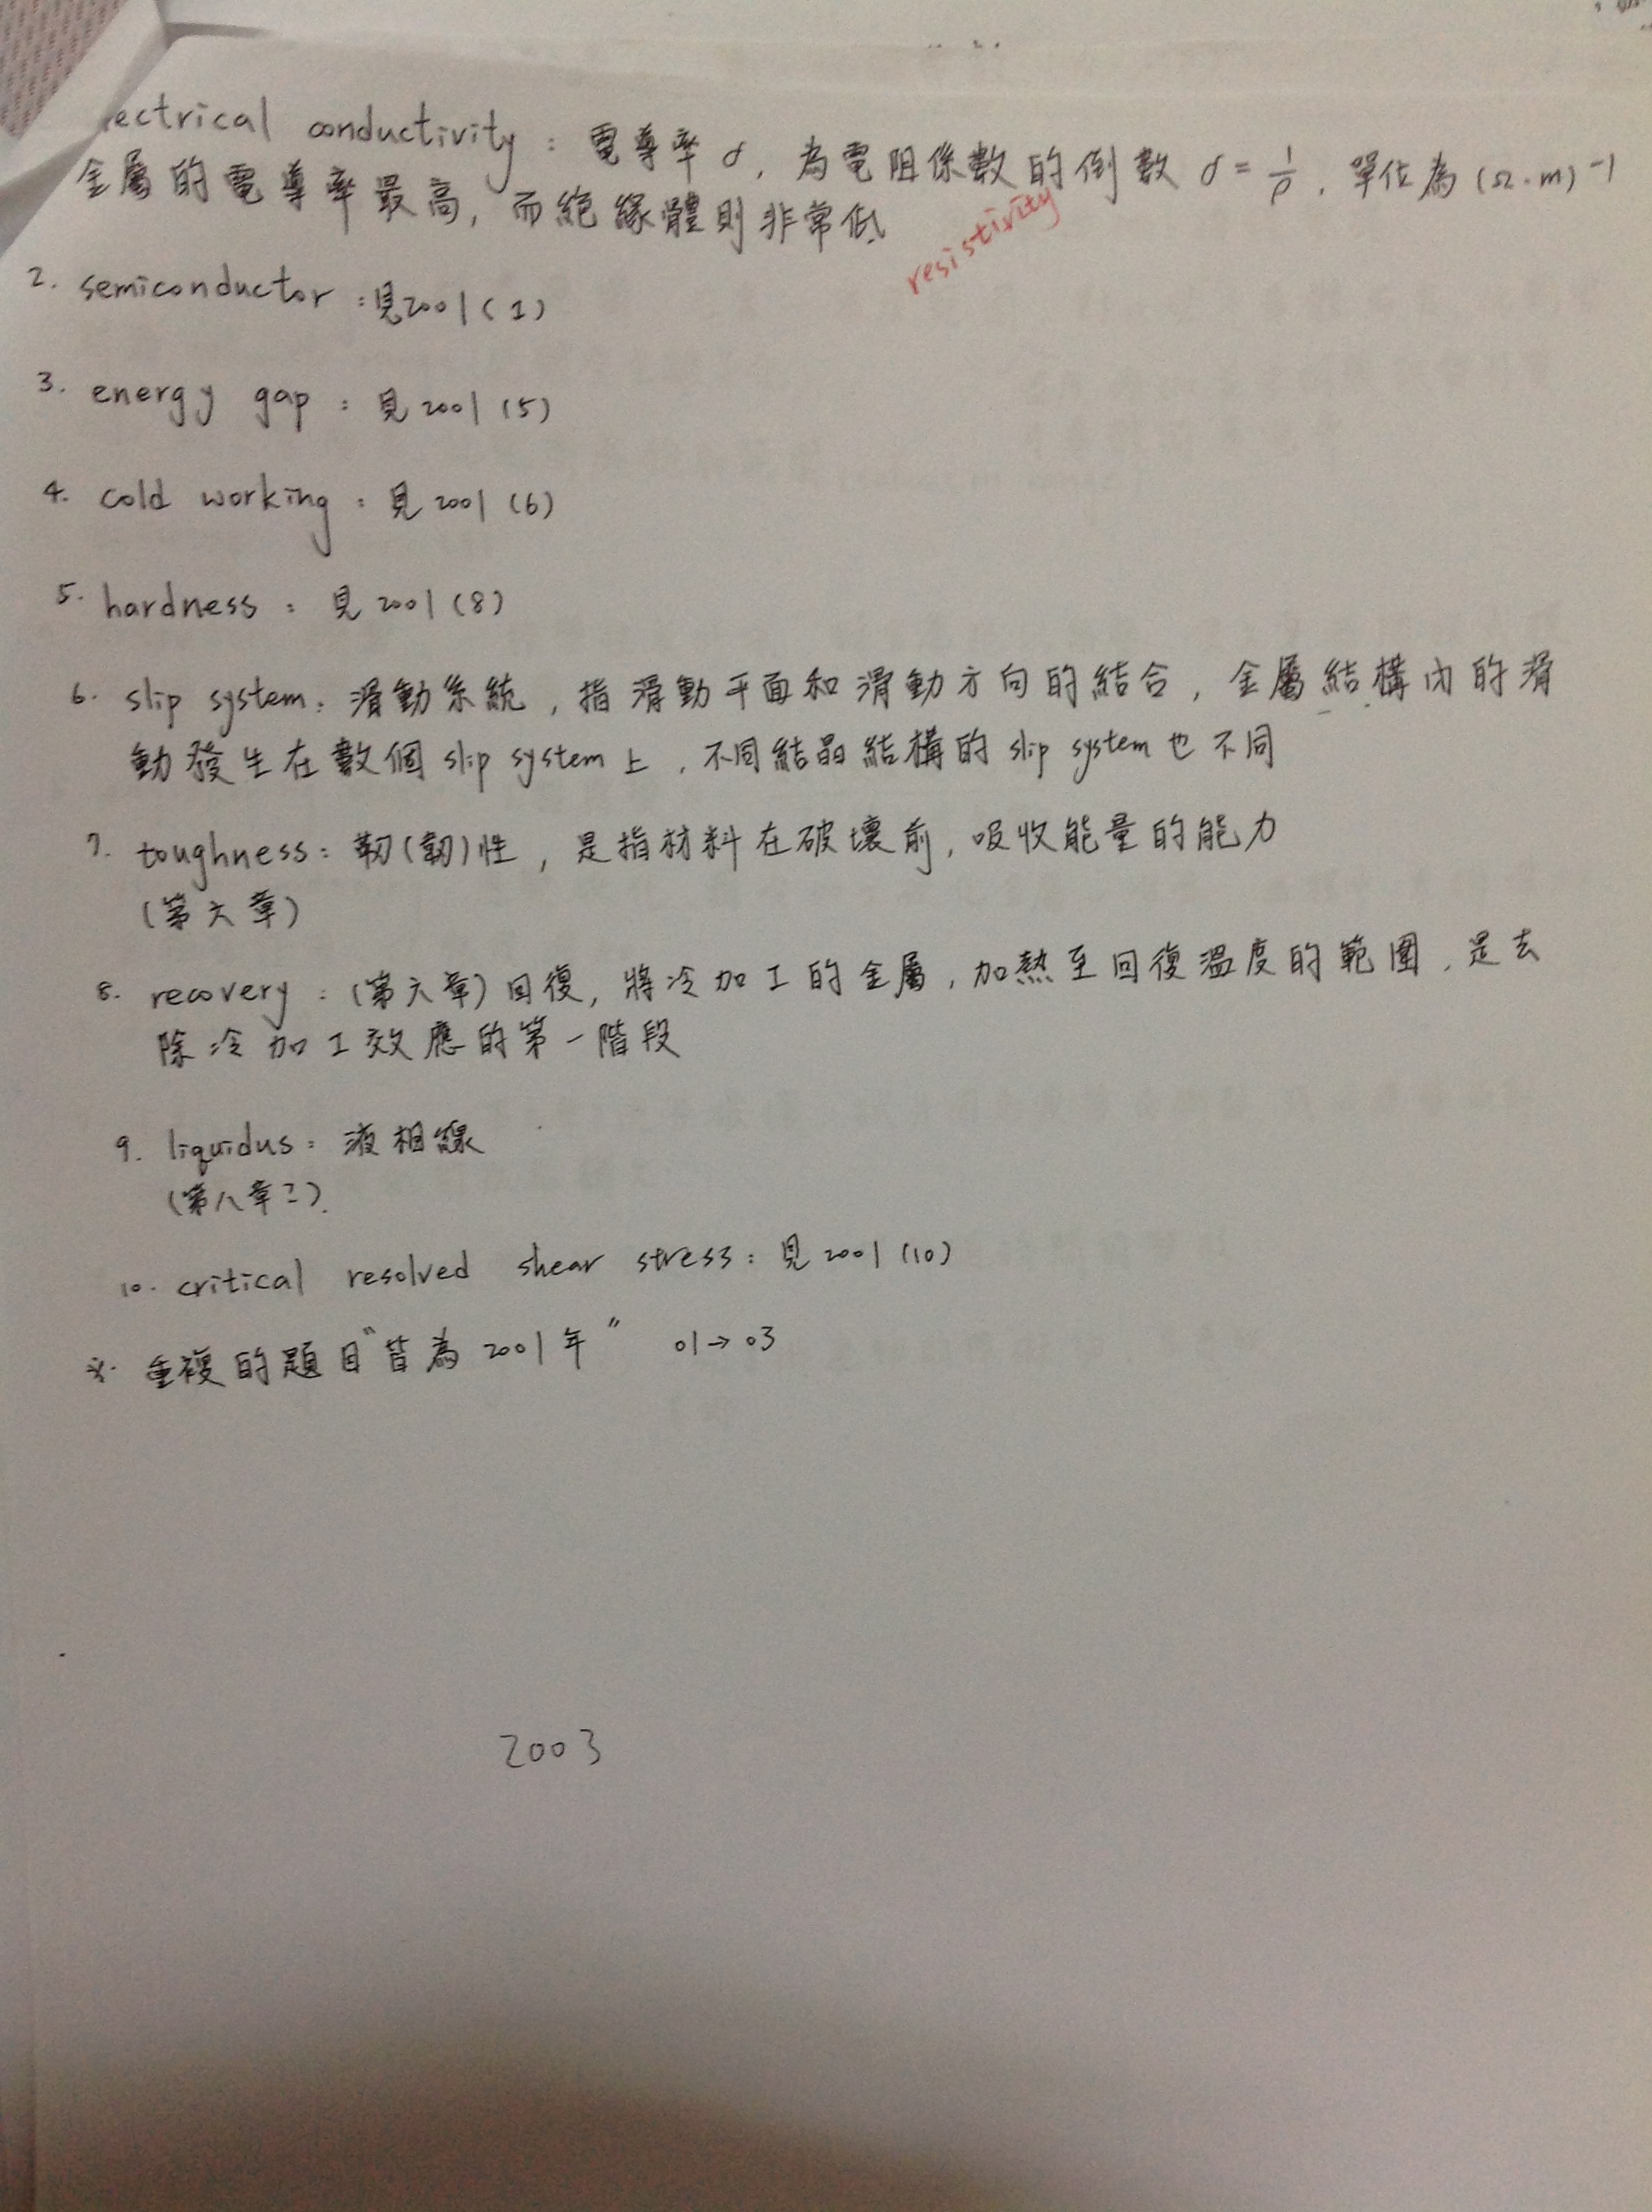 ectrical conductivity : 電導率 σ, 為電阻係數的倒數 σ = 1/ρ, 單位為 (Ω·m)⁻¹
金屬的電導率最高, 而絕緣體則非常低
resistivity
2. semiconductor : 見2001 (1)
3. energy gap : 見 2001 (5)
4. cold working : 見 2001 (6)
5. hardness : 見 2001 (8)
6. slip system : 滑動系統, 指滑動平面和滑動方向的結合, 金屬結構內的滑
動發生在數個 slip system 上, 不同結晶結構的 slip system 也不同
7. toughness : 靭(韌)性, 是指材料在破壞前, 吸收能量的能力
(第六章)
8. recovery : (第六章) 回復, 將冷加工的金屬, 加熱至回復溫度的範圍, 是去
除冷加工效應的第一階段
9. liquidus : 液相線
(第八章二).
10. critical resolved shear stress : 見 2001 (10)
※ 重複的題目"皆為 2001 年" 01→03
2003